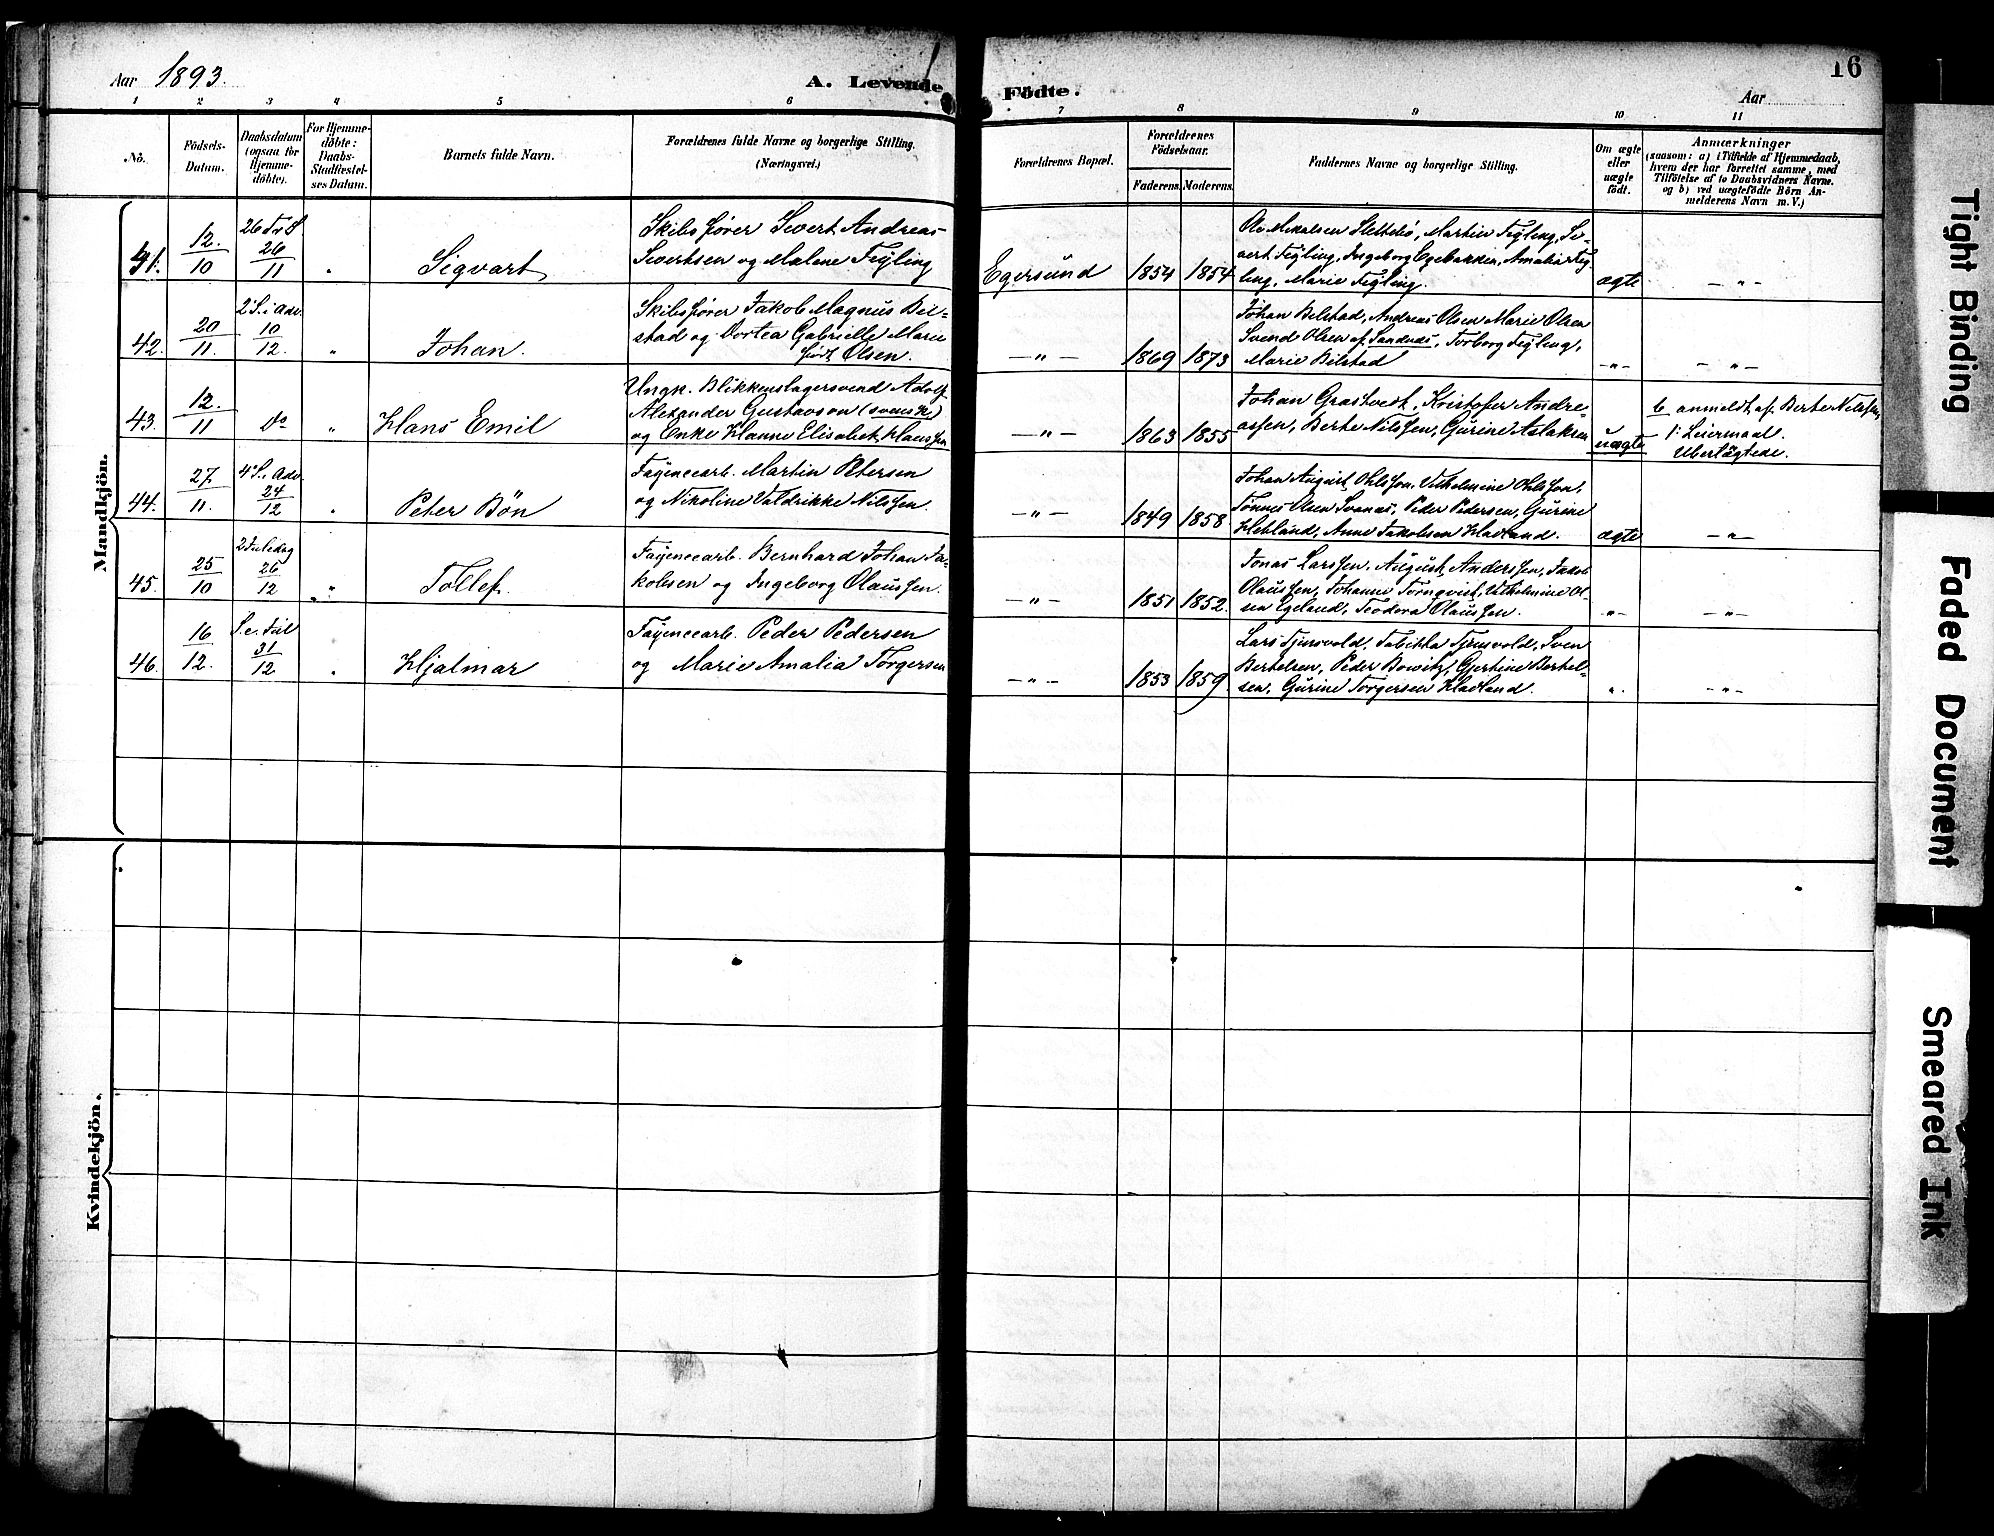 Aar 1893. A. Levende Födte. 16
Aar
1 2 3 4 5 6 7 8 9 10 11
No.
Födsels-
Datum.
Daabsdatum
(ogsaa for
Hjemme-
döbte).
For Hjemme-
döbte:
Daabs-
Stadfæstel-
ses Datum.
Barnets fulde Navn.
Forældrenes fulde Navne og borgerlige Stilling.
(Næringsvei.)
Forældrenes Bopæl.
Forældrenes
Födselsaar.
Faderens. Moderens.
Faddernes Navne og borgerlige Stilling.
Om ægte
eller
uægte
födt.
Anmærkninger
(saasom: a) i Tilfælde af Hjemmedaab,
hvem der har forrettet samme, med
Tilföielse af to Daabsvidners Navne,
og b) ved uægtefödte Börn An-
melderens Navn m. V.)
Mandkjön.
41. 12/10 26 Tr. S. 26/11 " Sigvart
Skibsfører Sivert Andreas
Sivertsen og Malene Tegling
Egersund 1854 1854
Ole Mikalsen Sletteбø, Martin Tegling, Si-
vert Tegling, Ingeborg Egebakken, Amalia Teg-
ling, Marie Tegling.
ægte — " —
42. 20/11. 2 S. i Adv. 10/12. " Johan.
Skibsfører Jakob Magnus Bil-
stad og Dortea Gabrielle Marie
født Olsen.
— " — 1869 1873
Johan Bilstad, Andreas Olsen Marie Olsen
Svend Olsen af Sandnæs, Torborg Tegling,
Marie Bilstad
— " — — " —
43. 12./11 do " Hans Emil
Ungk. Blikkenslagersvend Adolf
Alexander Gustavson (svensk)
og Enke Hanne Elisabet Claussen
— " — 1863 1855
Johan Grastvedt, Kristofer Andre-
assen, Berte Nilssen, Gurine Aslaksen
uægte
b. anmeldt af Berte Nilssen
1ste Leiermaal.
Ubeføgtede.
44. 27./11. 4 S. i Adv. 24/12 " Peter Bön
Fayencearb. Martin Petersen
og Nikoline Valdrikke Nilssen.
— " — 1849 1858
Johan August Ohlsson, Vilhelmine Ohlsson,
Tønnes Olsen Svanes, Peder Pedersen, Gurine
Hebland, Anne Jakobsen Hadland.
ægte — " —
45. 25/10 2 Juledag 26/12 " Tollef.
Fayencearb. Bernhard Johan Ja-
kobsen og Ingeborg Olaussen.
— " — 1851 1852.
Jonas Larssen, August Anderssen, Jakob
Olaussen, Johanne Tornqvist, Vilhelmine Ol-
sen Egeland, Teodora Olaussen.
— " — — " —
46. 16/12. S. e. Jul 31/12 " Hjalmar
Fayencearb. Peder Pedersen
og Marie Amalia Torgersen
— " — 1853 1859.
Lars Tjersvold, Tabitha Tjersvold, Sven
Bertelsen, Peder Bowitz, Gjertine Bertel-
sen, Gurine Torgersen Hadland.
" — " —
Kvindekjön.
Tight Binding
Faded Document
Smeared Ink